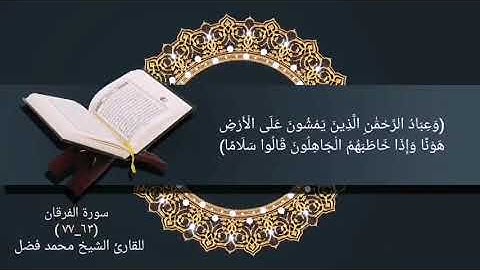 (وَعِبَادُ الرَّحْمَٰنِ الَّذِينَ يَمْشُونَ عَلَى الْأَرْضِ
هَوْنًا وَإِذَا خَاطَبَهُمُ الْجَاهِلُونَ قَالُوا سَلَامًا)
سورة الفرقان
(٦٣_٧٧)
للقارئ الشيخ محمد فضل